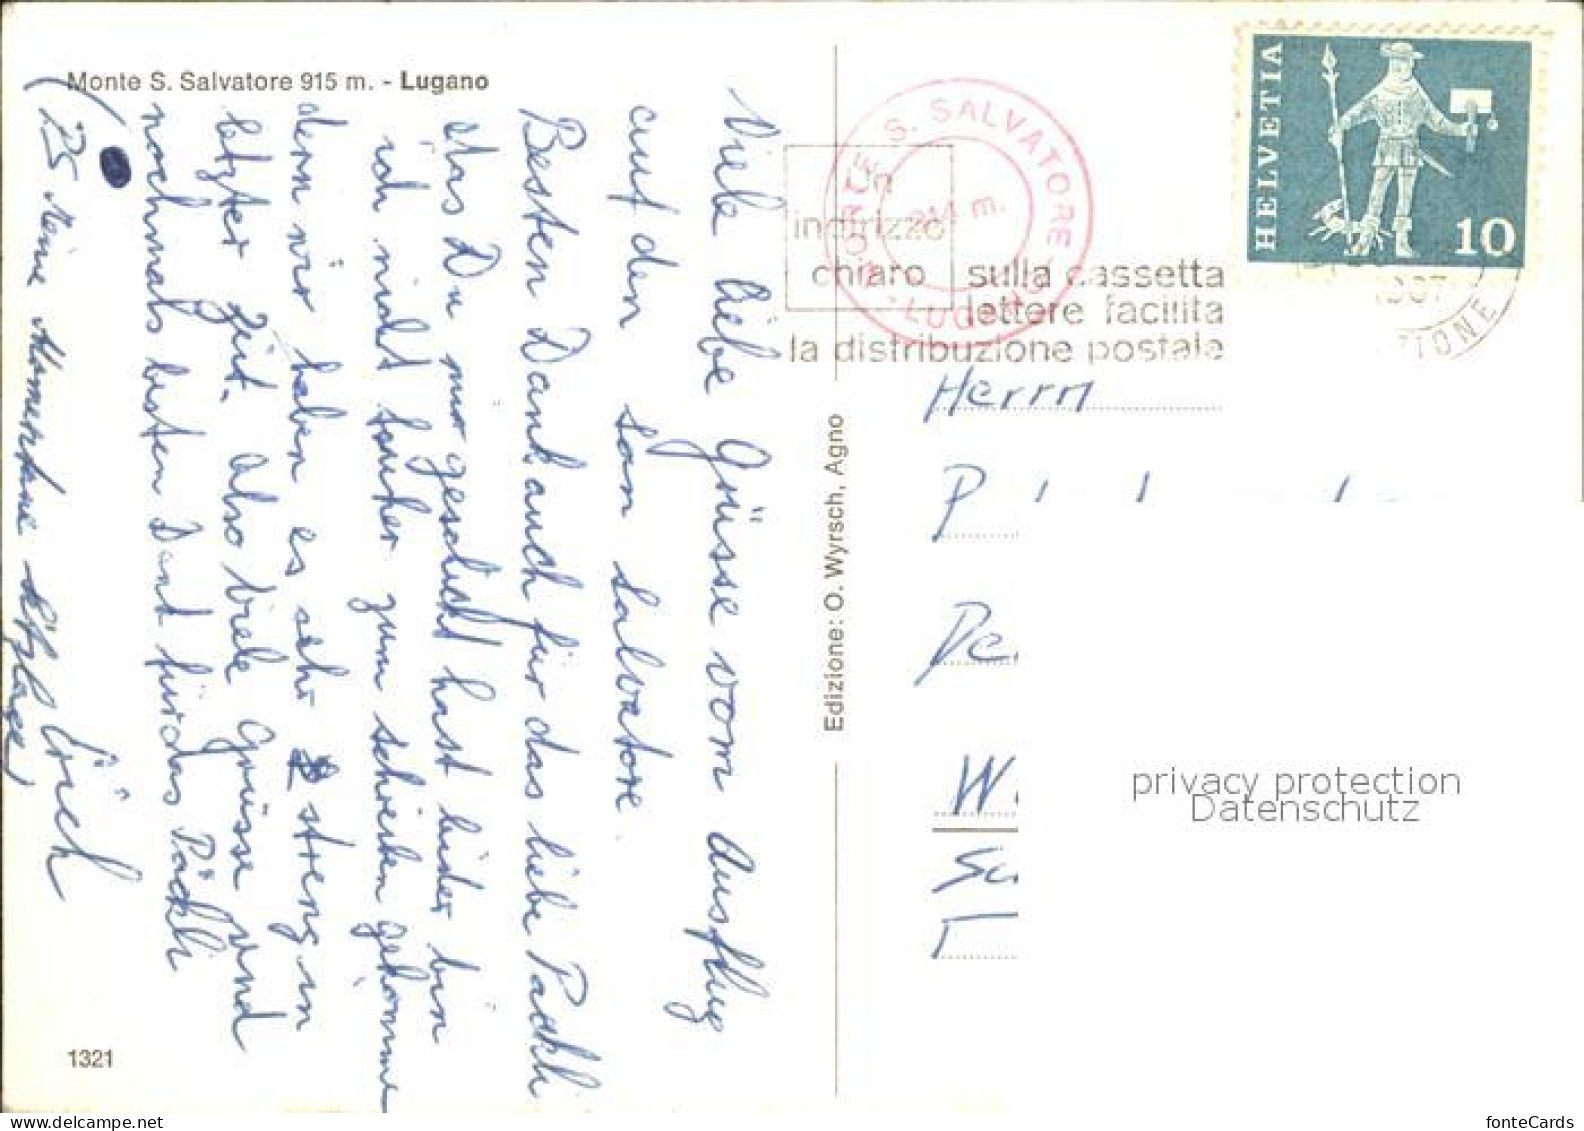 Monte S. Salvatore 915 m. - Lugano
Viele liebe Grüsse vom Ausflug
auf den San Salvatore.
Besten Dank auch für das liebe Päckli
das Du mir geschickt hast leider bin
ich nicht früher zum schreiben gekommen
denn wir haben es sehr streng in
letzter Zeit. Also viele Grüsse und
nochmals besten Dank für das Päckli
Erich
(P.S. Meine Momentane
Edizione: O. Wyrsch, Agno
1321
S. SALVATORE
LUGANO
914 m.
Un
indirizzo
chiaro sulla cassetta
lettere facilita
la distribuzione postale
HELVETIA
HELVETIA
10
Herrn
P
W
privacy protection
Datenschutz
fonteCards